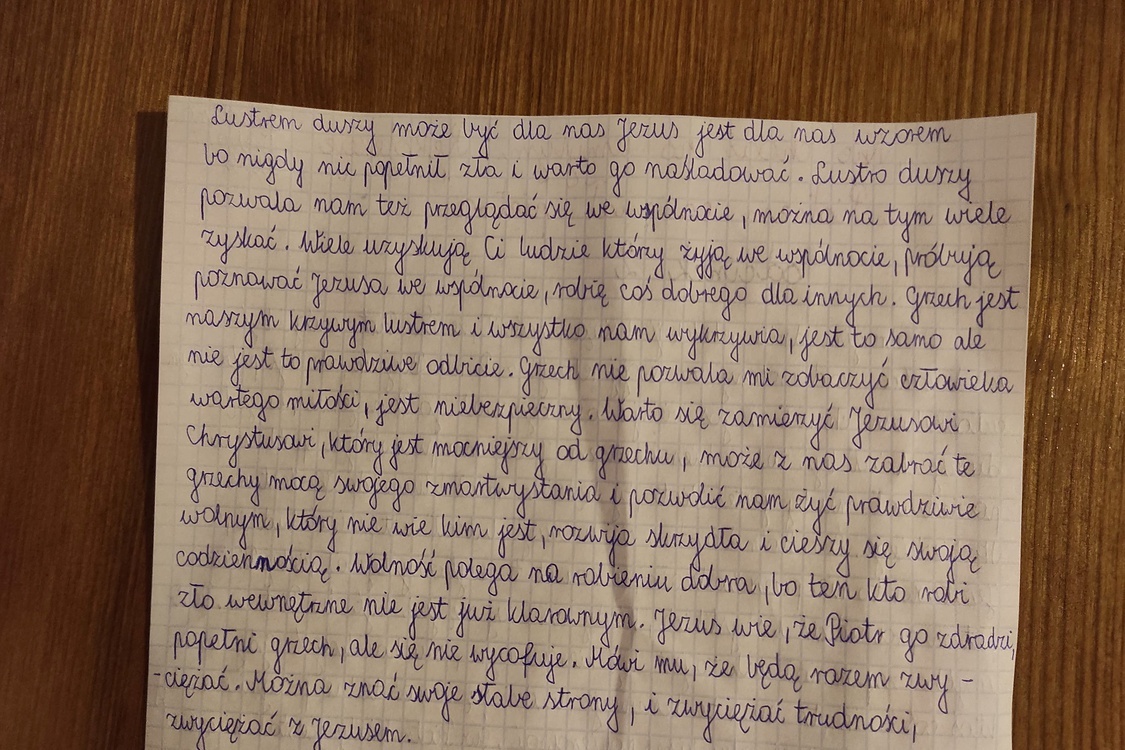 Lustrem duszy może być dla nas Jezus jest dla nas wzorem
bo nigdy nic popełnił zła i warto go naśladować. Lustro duszy
pozwala nam też przeglądać się we wspólnocie, można na tym wiele
zyskać. Wiele uzyskują Ci ludzie którzy żyją we wspólnocie, próbują
poznawać Jezusa we wspólnocie, robię coś dobrego dla innych. Grzech jest
naszym krzywym lustrem i wszystko nam wykrzywia, jest to samo ale
nie jest to prawdziwe odbicie. Grzech nie pozwala mi zobaczyć człowieka
wartego miłości, jest niebezpieczny. Warto się zamierzyć Jezusowi
Chrystusowi, który jest mocniejszy od grzechu, może z nas zabrać te
grzechy mocą swojego zmartwystania i pozwolić nam żyć prawdziwie
wolnym, który nie wie kim jest, rozwija skrzydła i cieszy się swoją
codziennością. Wolność polega na robieniu dobra, bo ten kto robi
zło wewnętrzne nie jest już klarownym. Jezus wie, że Piotr go zdradzi,
popełni grzech, ale się nie wycofuje. Mówi mu, że będą razem zwy-
-ciężać. Można znać swoje słabe strony, i zwyciężać trudności,
zwyciężać z Jezusem.